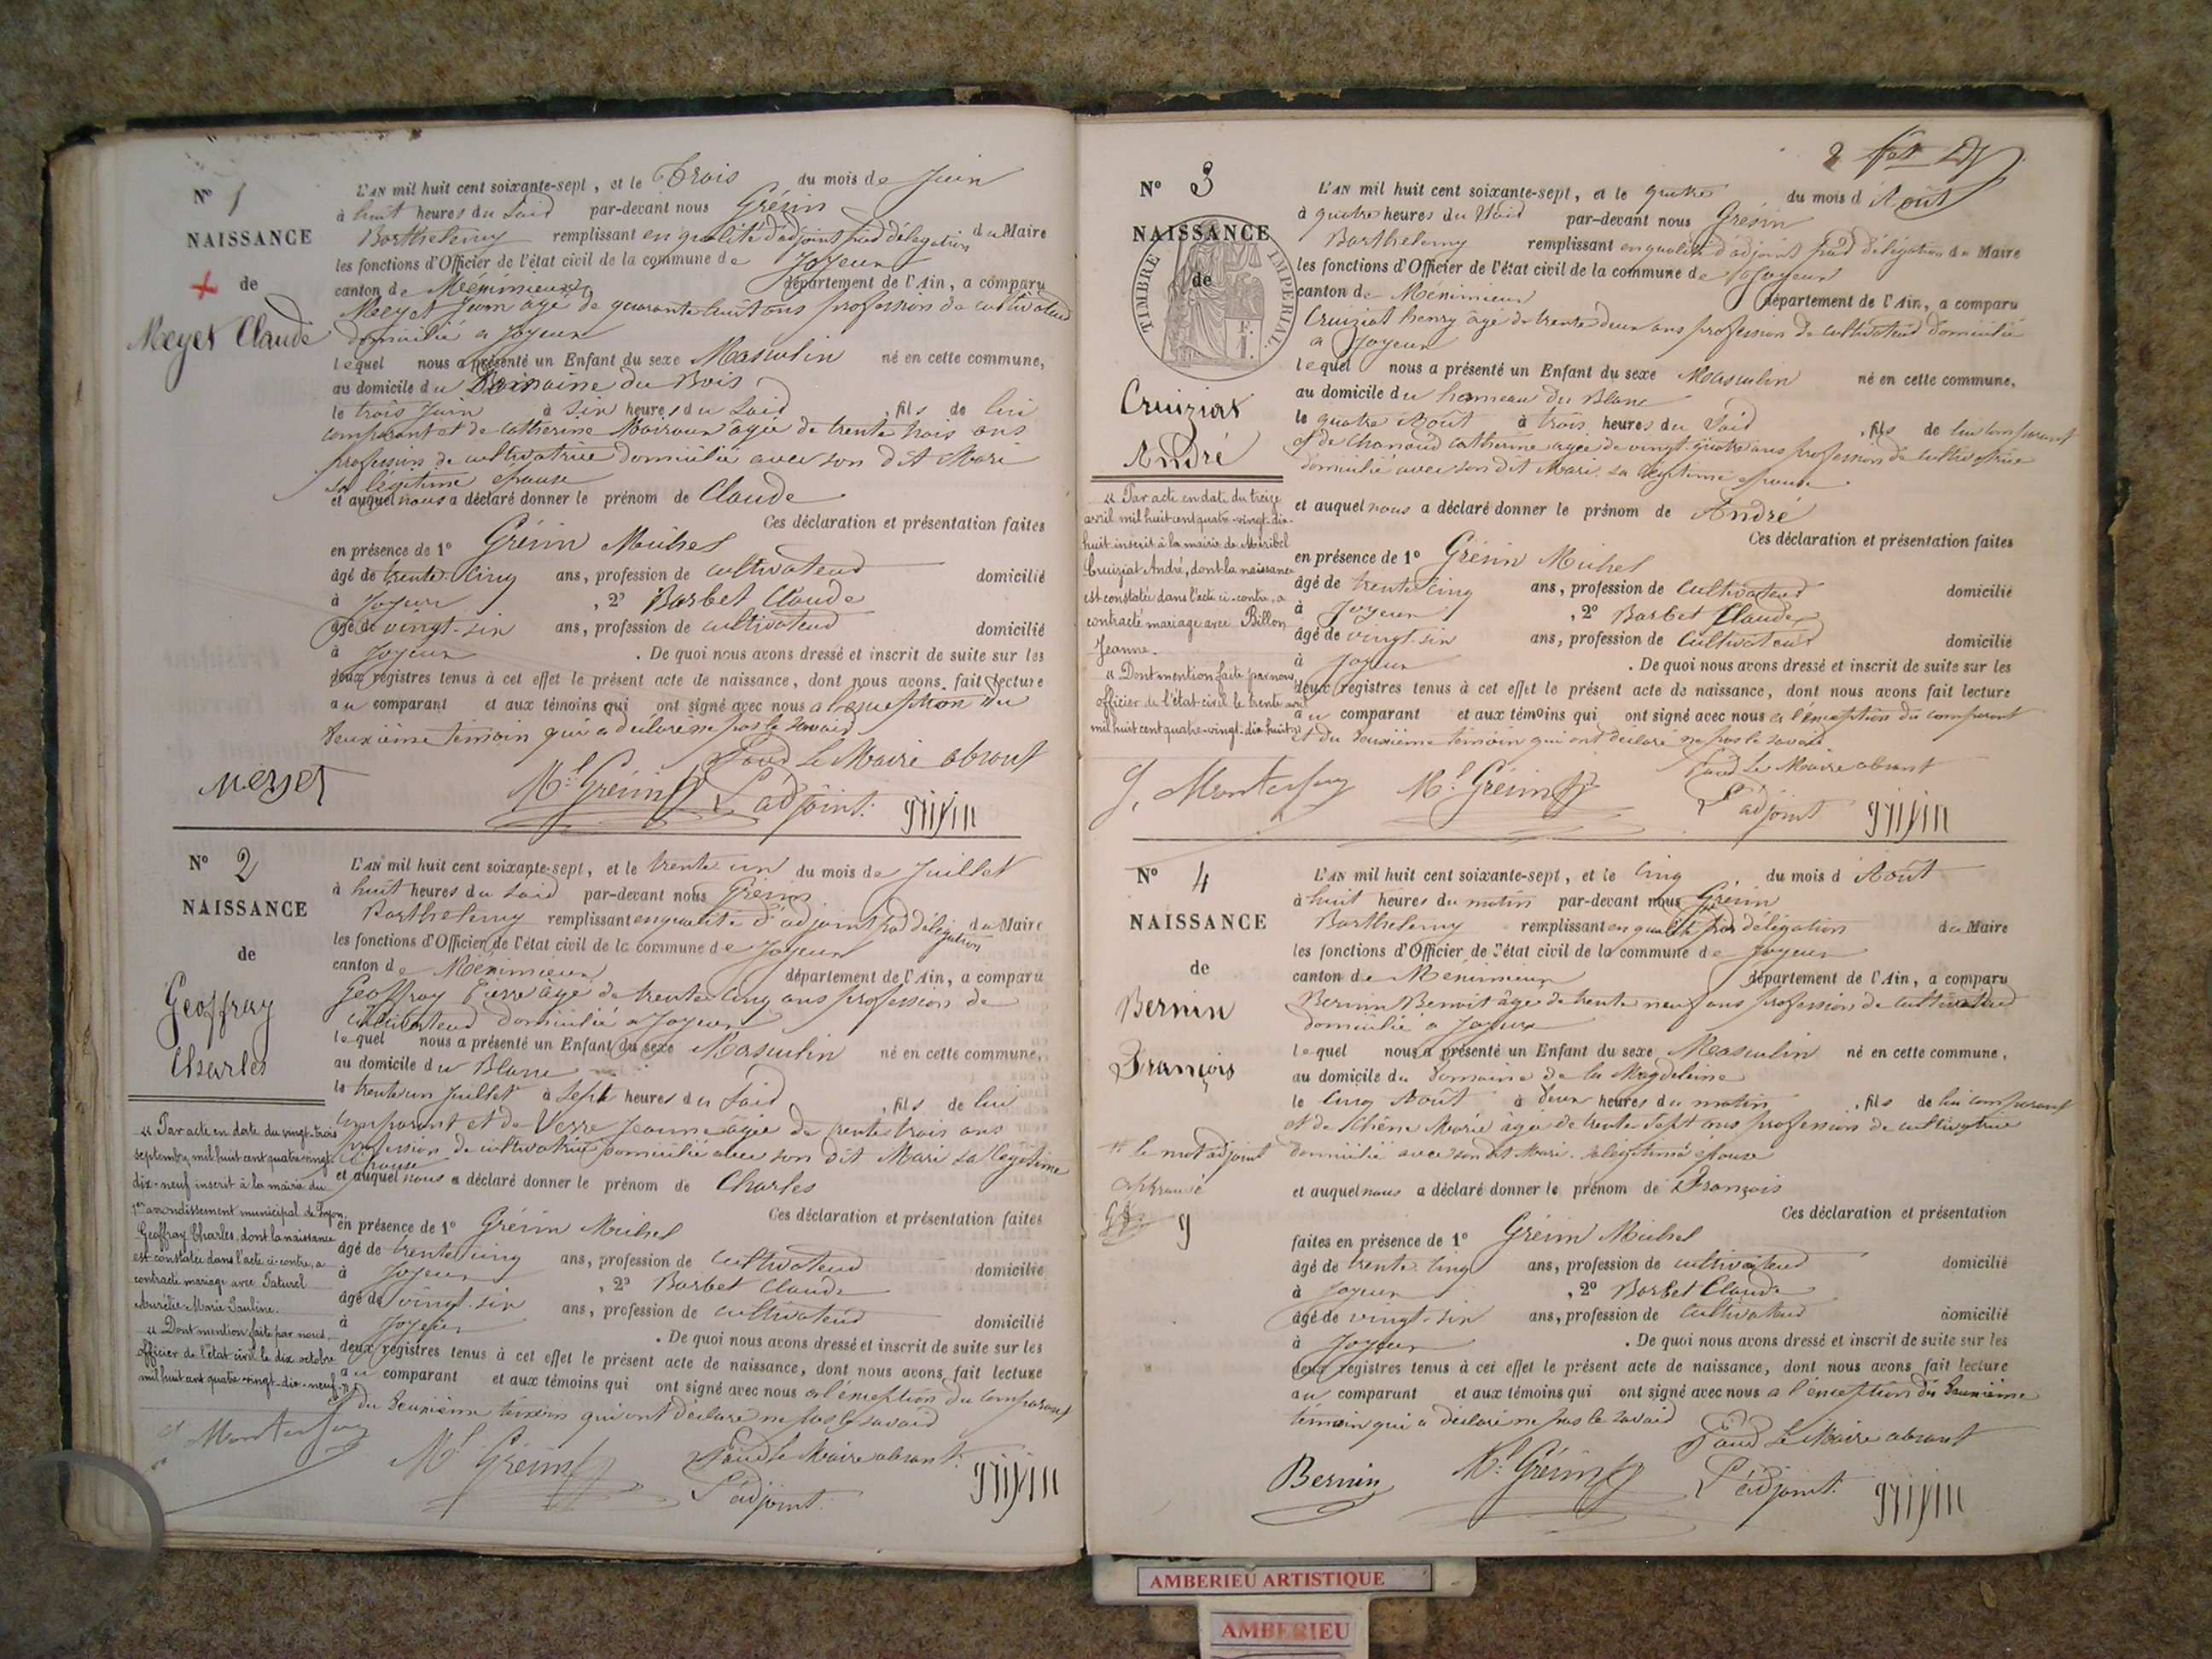 N° 1
NAISSANCE
de
Meyet Claude
L'AN mil huit cent soixante-sept, et le Trois du mois de Juin
à huit heures du Soid par-devant nous Grésin
Barthelemy remplissant en qualité d'adjoint pad délégation du Maire
les fonctions d'Officier de l'état civil de la commune de Joyeux
canton de Meximieux département de l'Ain, a comparu
Meyet Jean âgé de quarante huit ans profession de cultivateud
domicilié a Joyeux
lequel nous a présenté un Enfant du sexe Masculin né en cette commune,
au domicile du Domaine du Bois
le trois Juin à six heures du Soid, fils de lui
comparant et de Catherine âgée de trente trois ans
profession de cultivatrice domicilié avec son dit Mari
sa légitime épouse
et auquel nous a déclaré donner le prénom de Claude
Ces déclaration et présentation faites
en présence de 1° Grésin Michel
âgé de trente-cinq ans, profession de cultivateud domicilié
à Joyeux, 2° Barbet Claude
âgé de vingt-six ans, profession de cultivateud domicilié
à Joyeux. De quoi nous avons dressé et inscrit de suite sur les
deux registres tenus à cet effet le présent acte de naissance, dont nous avons fait lecture
au comparant et aux témoins qui ont signé avec nous a l'exception du
deuxième témoin qui a déclaré ne pas le savoid
Poud Le Maire absent
meyet M.l Grésin L'adjoint. grésin
N° 2
NAISSANCE
de
Geoffray
Charles
L'AN mil huit cent soixante-sept, et le trente un du mois de Juillet
à huit heures du Soid par-devant nous Grésin
Barthelemy remplissant en qualité d'adjoint pad délégation du Maire
les fonctions d'Officier de l'état civil de la commune de Joyeux
canton de Méximieux département de l'Ain, a comparu
Geoffray Pierre âgé de trente cinq ans profession de
cultivateud domicilié a Joyeux
lequel nous a présenté un Enfant du sexe Masculin né en cette commune,
au domicile du Blanc
le trente un Juillet à Sept heures du Soid, fils de lui
comparant et de Verre Jeanne âgée de trente trois ans
profession de cultivatrice domicilié avec son dit Mari sa légitime
épouse
et auquel nous a déclaré donner le prénom de Charles
Ces déclaration et présentation faites
en présence de 1° Grésin Michel
âgé de trente cinq ans, profession de cultivateud domicilié
à Joyeux, 2° Barbet Claude
âgé de vingt-six ans, profession de cultivateud domicilié
à Joyeux. De quoi nous avons dressé et inscrit de suite sur les
deux registres tenus à cet effet le présent acte de naissance, dont nous avons fait lecture
au comparant et aux témoins qui ont signé avec nous a l'exception du comparant
et du deuxième témoin qui ont déclaré ne pas le savoid
"Par acte en date du vingt-trois
septembre mil huit cent quatre-vingt-
dix-neuf inscrit à la mairie du
1er arrondissement municipal de Lyon,
Geoffray Charles, dont la naissance
est constatée dans l'acte ci-contre, a
contracté mariage avec Paturel
Aurélie Marie Pauline.
"Dont mention faite par nous,
officier de l'état civil le dix octobre
mil huit cent quatre-vingt-dix-neuf.
M.l Grésin Poud Le Maire absent.
L'adjoint. grésin
2
N° 3
NAISSANCE
de
TIMBRE IMPERIAL
Cruiziat
André
L'AN mil huit cent soixante-sept, et le quatre du mois d'Août
à quatre heures du Soid par-devant nous Grésin
Barthelemy remplissant en qualité d'adjoint pad délégation du Maire
les fonctions d'Officier de l'état civil de la commune de Joyeux
canton de Méximieux département de l'Ain, a comparu
Cruiziat henry âgé de trente deux ans profession de cultivateud domicilié
a Joyeux
lequel nous a présenté un Enfant du sexe Masculin né en cette commune,
au domicile du hameau du Blanc
le quatre Août à trois heures du Soid, fils de lui comparant
et de Chanaud Catherine agée de vingt-quatre ans profession de cultivatrice
domicilié avec son dit Mari sa légitime épouse
et auquel nous a déclaré donner le prénom de André
Ces déclaration et présentation faites
en présence de 1° Grésin Michel
âgé de trente cinq ans, profession de Cultivateud domicilié
à Joyeux, 2° Barbet Claude
âgé de vingt-six ans, profession de Cultivateud domicilié
à Joyeux. De quoi nous avons dressé et inscrit de suite sur les
deux registres tenus à cet effet le présent acte de naissance, dont nous avons fait lecture
au comparant et aux témoins qui ont signé avec nous a l'exception du comparant
et du deuxième témoin qui ont déclaré ne pas le savoid
"Par acte en date du treize
avril mil huit cent quatre-vingt-dix-
huit inscrit à la mairie de Miribel
Cruiziat André, dont la naissance
est constatée dans l'acte ci-contre, a
contracté mariage avec Billon
Jeanne.
"Dont mention faite par nous,
officier de l'état civil le trente avril
mil huit cent quatre-vingt-dix-huit.
M.l Grésin Poud Le Maire absent
L'adjoint grésin
N° 4
NAISSANCE
de
Bernin
François
L'AN mil huit cent soixante-sept, et le cinq du mois d'Août
à huit heures du matin par-devant nous Grésin
Barthelemy remplissant en qualité pad délégation du Maire
les fonctions d'Officier de l'état civil de la commune de Joyeux
canton de Meximieux département de l'Ain, a comparu
Bernin Benoit âgé de trente neuf ans profession de cultivateud
domicilié a Joyeux
lequel nous a présenté un Enfant du sexe Masculin né en cette commune,
au domicile du Domaine de la Magdeleine
le cinq Août à deux heures du matin, fils de lui comparant
et de Chêne Marie âgée de trente sept ans profession de cultivatrice
domicilié avec son dit Mari. sa légitime épouse
le mot adjoint
approuvé
g
et auquel nous a déclaré donner le prénom de François
Ces déclaration et présentation
faites en présence de 1° Grésin Michel
âgé de trente-cinq ans, profession de cultivateud domicilié
à Joyeux, 2° Barbet Claude
âgé de vingt-six ans, profession de Cultivateud domicilié
à Joyeux. De quoi nous avons dressé et inscrit de suite sur les
deux registres tenus à cet effet le présent acte de naissance, dont nous avons fait lecture
au comparant et aux témoins qui ont signé avec nous a l'exception du deuxième
témoin qui a déclaré ne pas le savoid
Poud Le Maire absent
Bernin M.l Grésin L'adjoint. grésin
AMBERIEU ARTISTIQUE
AMBERIEU